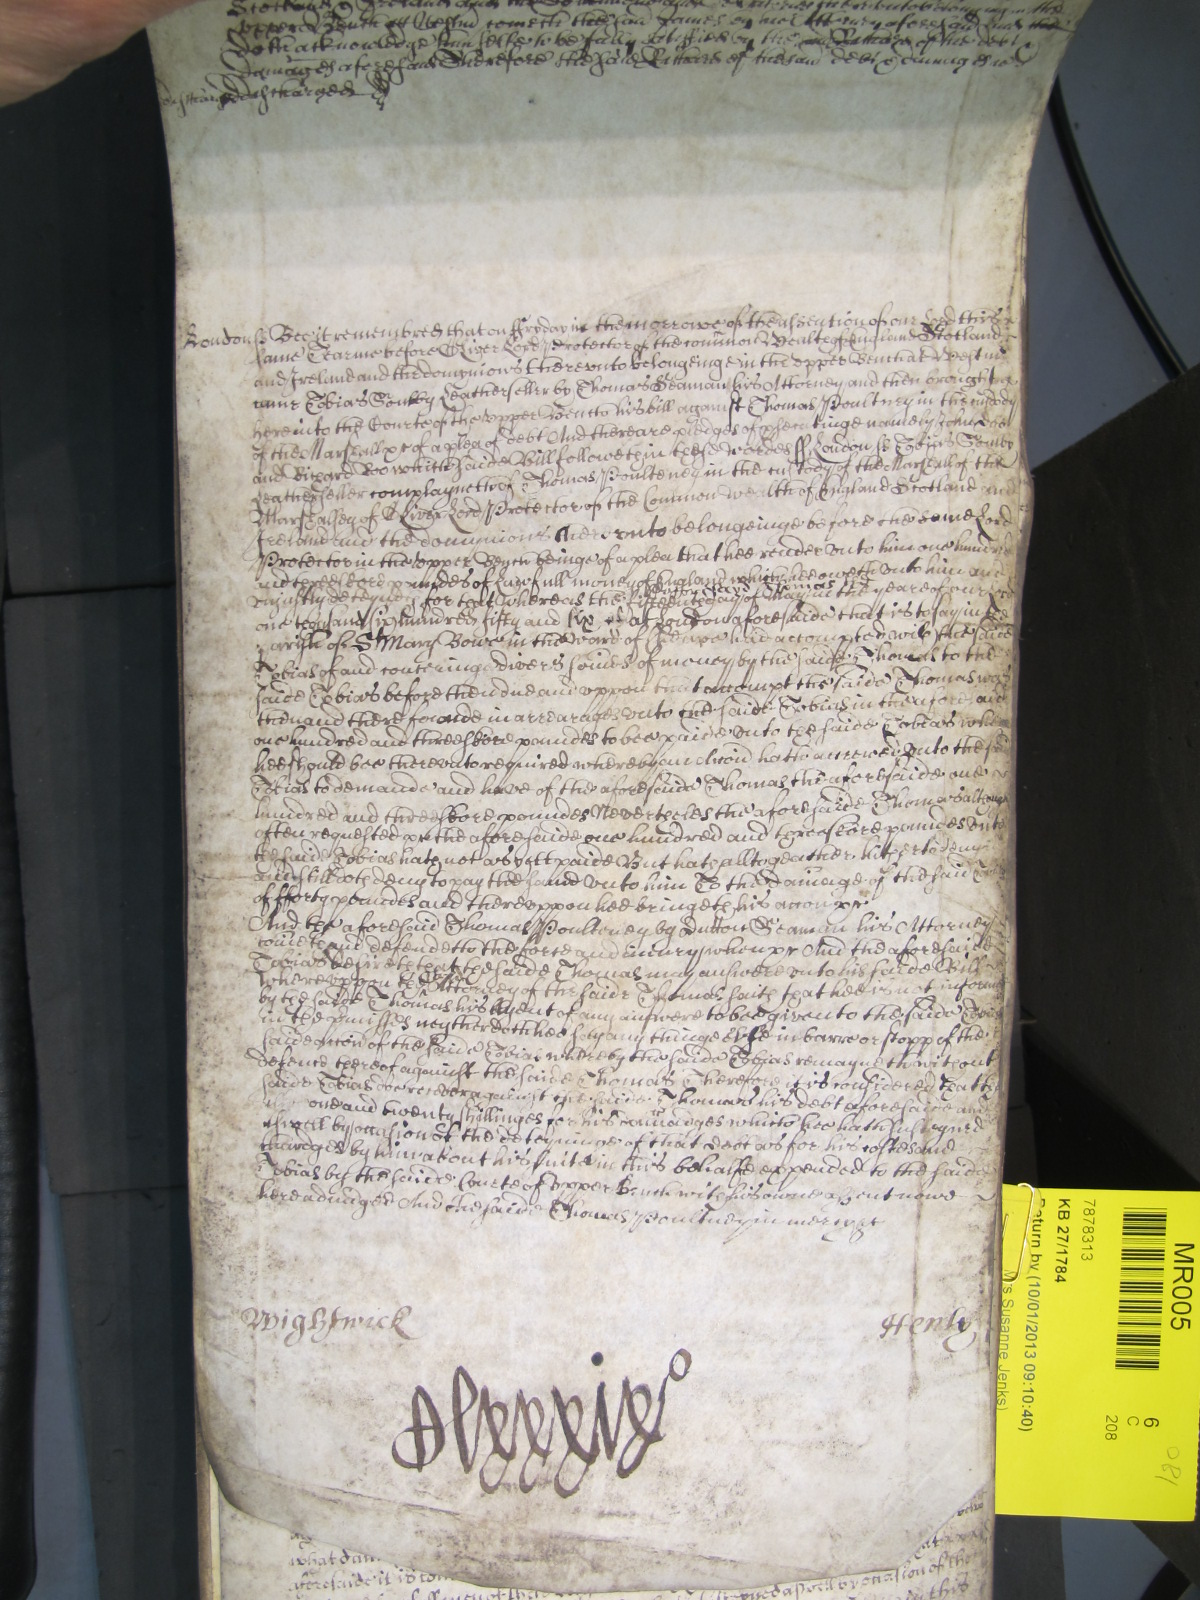 damages aforesaid Therefore the said of the said debt & damages
discharged
London ss Bee it remembred that on ffryday in the morrowe of the assention of our Lord this
same Tearme before Oliver Lord Protector of the Common Wealth of England Scotland
and Ireland and the dominions thereunto belongeinge in the upper Bench at Westmr
came Tobias Leatherseller by Thomas Seaman his Attorney and then brought
here into the Courte of the Upper Bench his bill against Thomas Poulteney in the custody
of the Marshall &c of a plea of debt And there are pledges of prosecutinge namely John Doe
and Richard Roe which saide Bill followeth in these wordes ss London ss Tobias
Leatherseller complayneth of Thomas Poulteney in the custody of the Marshall of the
Marshalsey of Oliver Lord Protector of the Common wealth of England Scotland and
Ireland and the dominions thereunto belongeinge before the same Lord
Protector in the upper Bench beinge of a plea that hee render unto him one hundred
and threescore poundes of lawfull money of England which hee oweth unto him and
uniustly deteyneth for that whereas the said Thomas the fifteenth day of May in the yeare of our Lord
one thousand six hundred fifty and six at London aforesaide that is to say in the
parish of St Mary Bowe in the ward of Cheape had accompted with the saide
Tobias of and concerninge divers somes of money by the saide Thomas to the
saide Tobias before then due and uppon that accompt the saide Thomas was
then and there founde in arrearages unto the saide Tobias in the aforesaid
one hundred and threescore poundes to bee paide unto the saide Tobias when
hee should bee thereunto required whereby an accion hath accrewed unto the said
Tobias to demande and have of the aforesaide Thomas the aforesaide one
hundred and threescore poundes Neverthelesse the aforesaide Thomas although
often requested &c the aforesaide one hundred and threescore poundes unto
the saide Tobias hath not as yett paide But hath alltogeather hitherto denyed
and still doth deny to pay the same unto him To the damage of the said Tobias
of fforty poundes and thereuppon hee bringeth his accon &c
And the aforesaid Thomas Poulteney by Dutton Seaman his Attorney
cometh and defendeth the force and iniury when &c And the aforesaide
Tobias desireth that the saide Thomas may answere unto his saide Bill
Whereuppon the Attorney of the saide Thomas saith that hee is not informed
by the saide Thomas his Clyent of any answere to bee given to the saide Tobias
in the premisses neyther doth hee say any thinge else in barre or stopp of the
saide accion of the saide Tobias whereby the saide Tobias remayneth without
defence thereof against the saide Thomas Therefore it is considered that the
saide Tobias doe recover against the saide Thomas his debt aforesaide and
one and twenty shillinges for his damages which hee hath susteyned
aswell by occasion of the deteyninge of that debt as for his costes and
charges by him about his suite in this behalfe expended to the saide
Tobias by the saide Courte of Upper Bench with his owne assent nowe
here adiudged And the saide Thomas Poulteney in mercy &c
Wightwick Henly
MR005
6
C
208
7878313
KB 27/1784
Return by (10/01/2013 09:10:40)
Mrs Susanne Jenks)
what dam
aforesaide it is con